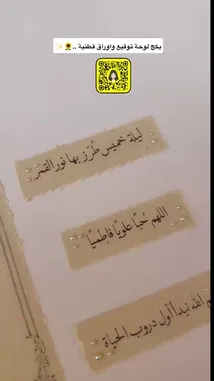 بكج لوحة توقيع واوراق قطنية ..
ليلة خميس طُرّز بها نور القمر
اللهم حُبًا علويًا فاطميًا
الله نبدأ أول دروب الحياة